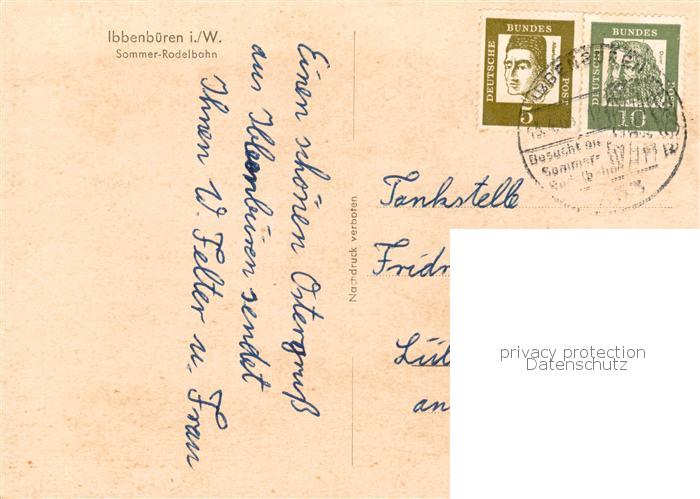 Ibbenbüren i./W.
Sommer-Rodelbahn
Einen schönen Ostergruß
aus Ibbenbüren sendet
Ihnen W. Felter u. Frau
Nachdruck verboten
DEUTSCHE BUNDES POST
5
DEUTSCHE BUNDES POST
10
Besucht die
Sommer-
Tankstelle
Fridr
Lüb
an
privacy protection
Datenschutz